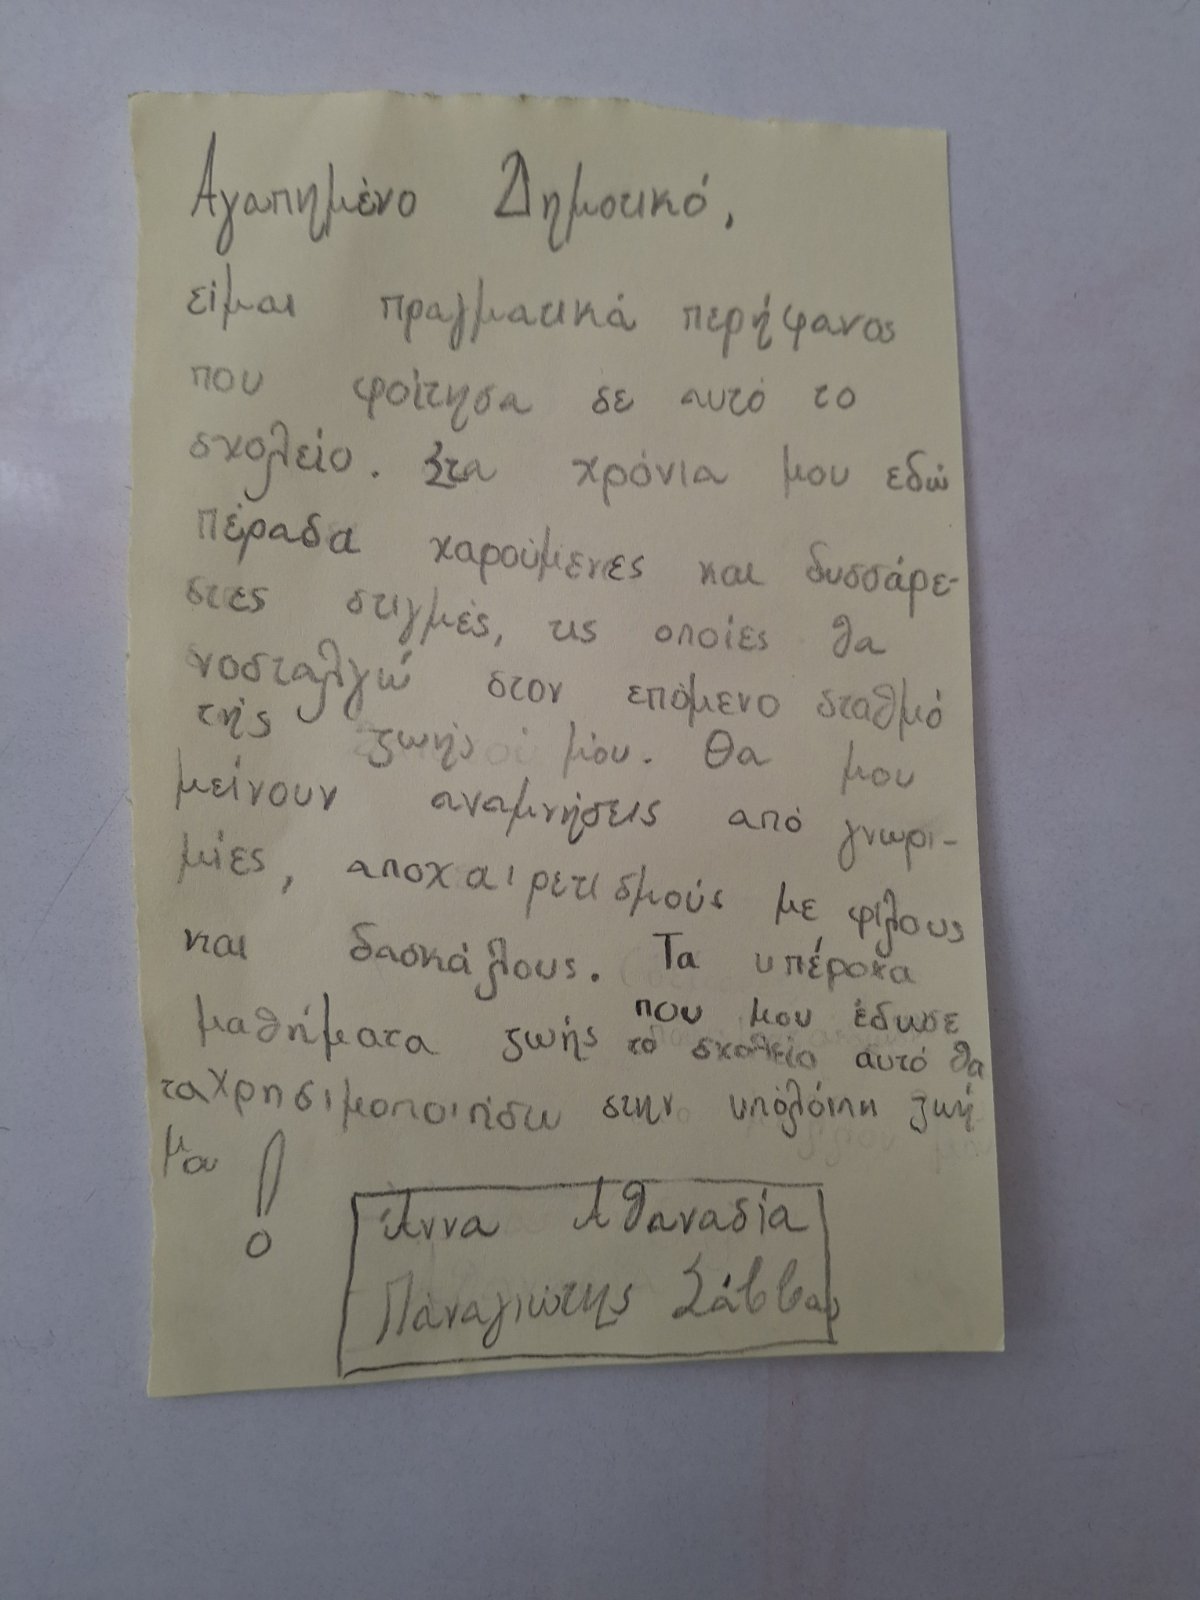 Αγαπημένο Δημοτικό,
είμαι πραγματικά περήφανος
που φοίτησα σε αυτό το
σχολείο. Στα χρόνια μου εδώ
πέρασα χαρούμενες και δυσσάρε-
στες στιγμές, τις οποίες θα
νοσταλγώ στον επόμενο σταθμό
της ζωής μου. Θα μου
μείνουν αναμνήσεις από γνωρι-
μίες, αποχαιρετισμούς με φίλους
και δασκάλους. Τα υπέροχα
μαθήματα ζωής που μου έδωσε
το σχολείο αυτό θα
τα χρησιμοποιήσω στην υπόλοιπη ζωή
μου!
Άννα Αθανασία
Παναγιώτης Σάββας